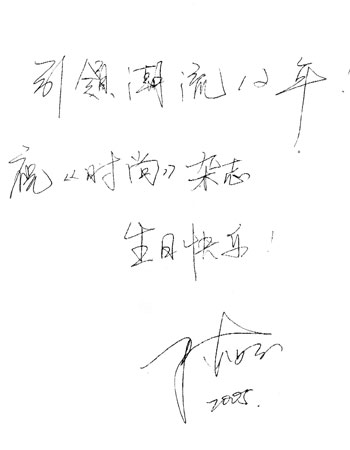 引领潮流12年!
祝《时尚》杂志
生日快乐!
2005.